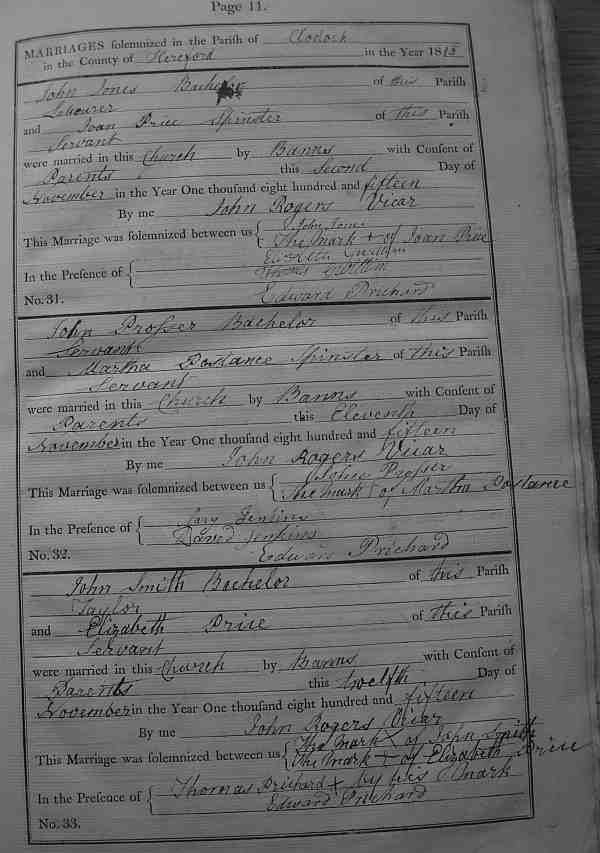 Page 11.
MARRIAGES solemnized in the Parish of Clodock
in the County of Hereford in the Year 1815
John Jones Bachelor of this Parish
Labourer
and Joan Price Spinster of this Parish
Servant
were married in this Church by Banns with Consent of
Parents this Second Day of
November in the Year One thousand eight hundred and fifteen
By me John Rogers Vicar
This Marriage was solemnized between us { John Jones
The Mark + of Joan Price
In the Presence of {
Thomas
No. 31. Edward Prichard
John Prosser Bachelor of this Parish
Servant
and Martha Postance Spinster of this Parish
Servant
were married in this Church by Banns with Consent of
Parents this Eleventh Day of
November in the Year One thousand eight hundred and fifteen
By me John Rogers Vicar
This Marriage was solemnized between us { John Prosser
The mark + of Martha Postance
In the Presence of { Jenkins
David Jenkins
No. 32. Edward Prichard
John Smith Bachelor of this Parish
Taylor
and Elizabeth Price of this Parish
Servant
were married in this Church by Banns with Consent of
Parents this twelfth Day of
November in the Year One thousand eight hundred and fifteen
By me John Rogers Vicar
This Marriage was solemnized between us { The Mark X of John Smith
The Mark + of Elizabeth Price
In the Presence of { Thomas Prichard + by his Mark
Edward Prichard
No. 33.